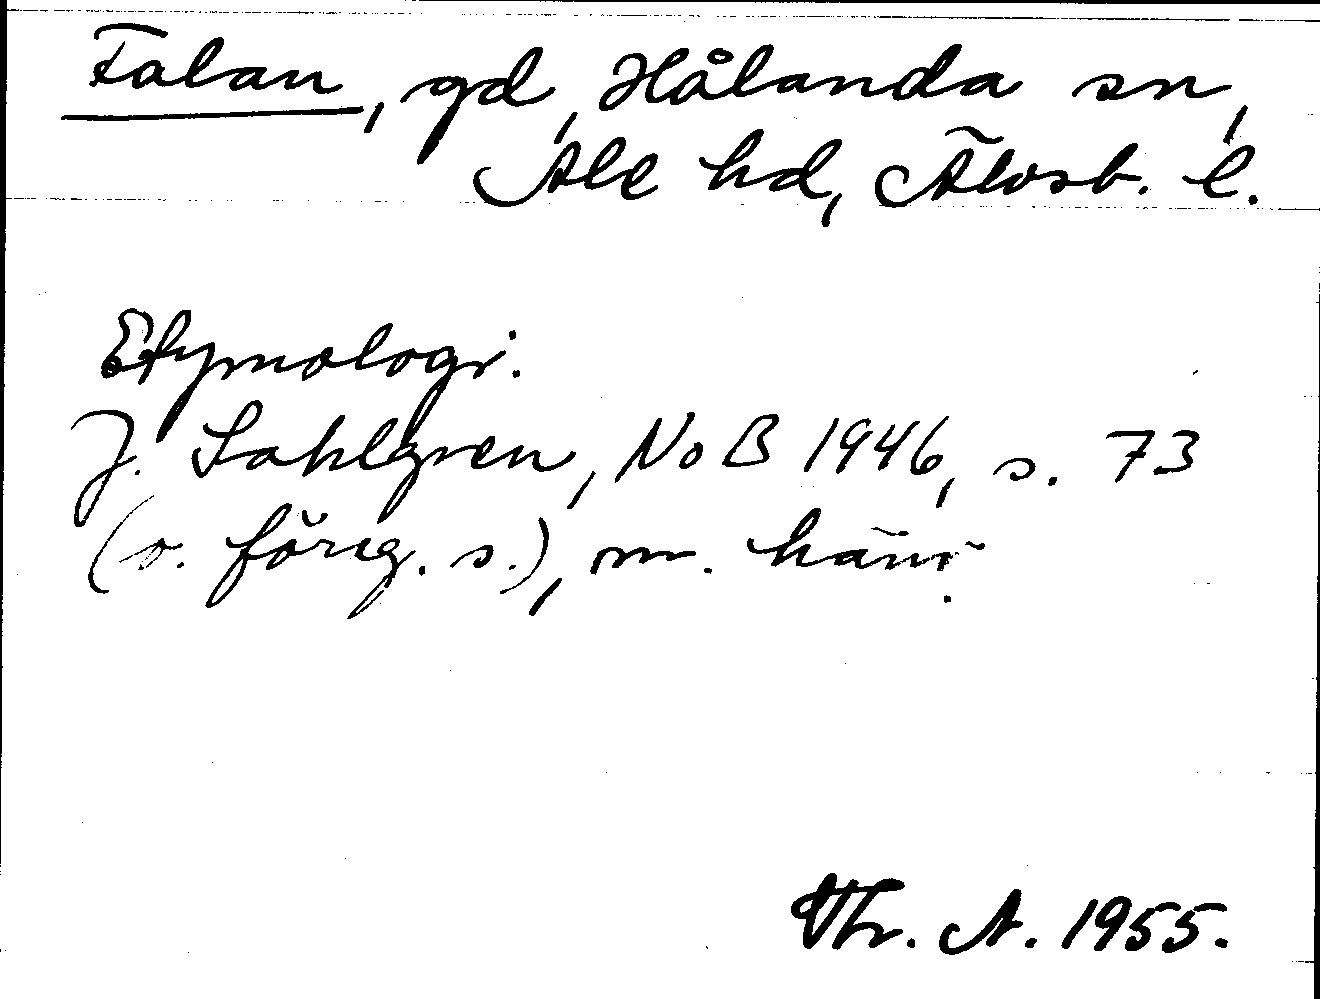 Falan, gd, Hålanda sn,
Ale hd, Älvsb. l.
Etymologi.
J. Sahlgren, NoB 1946, s. 73
(o. föreg. s.), m. hänv.
Thr. A. 1955.